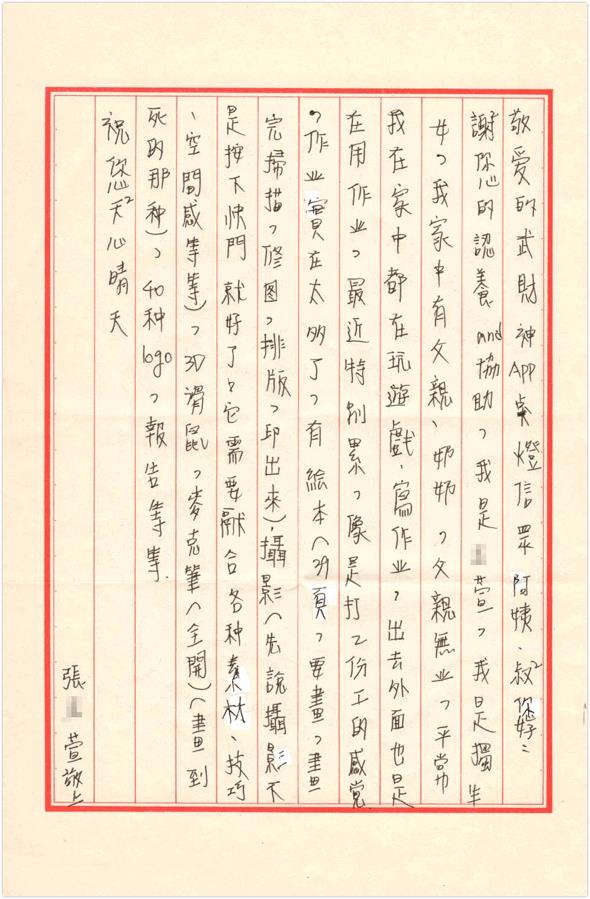 敬愛的武財神APP桌燈信眾阿姨、叔²您好:
謝²您的認養and協助,我是萱,我是獨生
女,我家中有父親、奶奶,父親無业,平常
我在家中都在玩遊戲、寫作业,出去外面也是
在用作业,最近特別累,像是打2份工的感覺
,作业實在太多了,有絵本(39頁,要畫,畫
完掃描,修图,排版,印出來),攝影(先說攝影不
是按下快門就好了,它需要融合各种素材、技巧
、空間感等等),3D滑鼠,麥克筆(全開)(畫到
死的那种),40种logo,報告等等.
祝您天²心晴天
張萱敬上